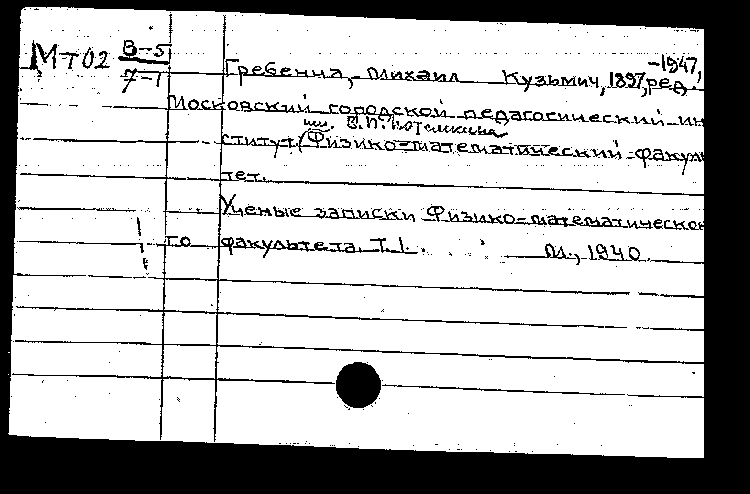 -1947,
МТ02 В-5
7-1
Гребенча, Михаил Кузьмич, 1897, ред.
Московский городской педагогический ин
им. В.П. Потемкина
ститут. (Физико-математический факуль
тет.
Ученые записки Физико-математическо
го факультета. Т.1. М., 1940.